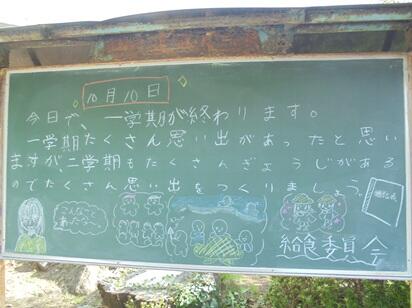 10月10日
今日で、一学期が終わります。
一学期たくさん思い出があったと思い
ますが、二学期もたくさんぎょうじがある
のでたくさん思い出をつくりましょう。
給食委員会